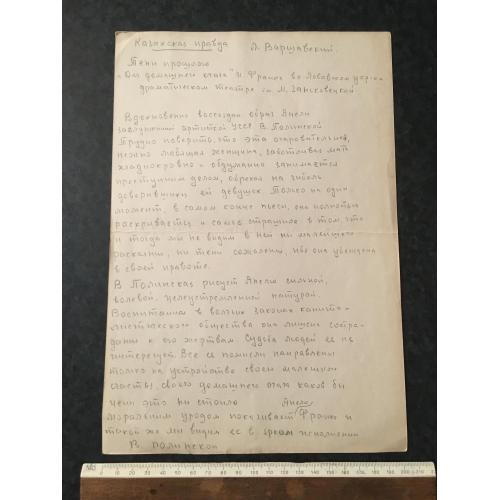 Казахская правда Л. Варшавский.
Тени прошлого
"Для домашнего очага" И. Франко во Львовском укр.
драматическом театре им. М. Заньковецкой
Вдохновенно воссоздан образ Анели
заслуженной артисткой УССР В. Полинской
Трудно поверить, что эта очаровательная,
нежно любящая женщина, заботливая мать
хладнокровно и обдуманно занимается
преступным делом, обрекая на гибель
доверившихся ей девушек. Только на один
момент, в самом конце пьесы, она полностью
раскрывается и самое страшное в том, что
и тогда мы не видим в ней ни малейшего
раскаяния, ни тени сожаления, ибо она убеждена
в своей правоте.
В. Полинская рисует Анелю сильной,
волевой, целеустремленной натурой.
Воспитанная в волчьих законах капита-
листического общества она лишена состра-
дания к его жертвам. Судьба людей ее не
интересует. Все ее помыслы направлены
только на устройство своего маленького
счастья, своего домашнего очага каков бы
ценой это ни стоило
Анелю
моральным уродом показывает Франко и
такой же мы видим ее в ярком исполнении
В. Полинской